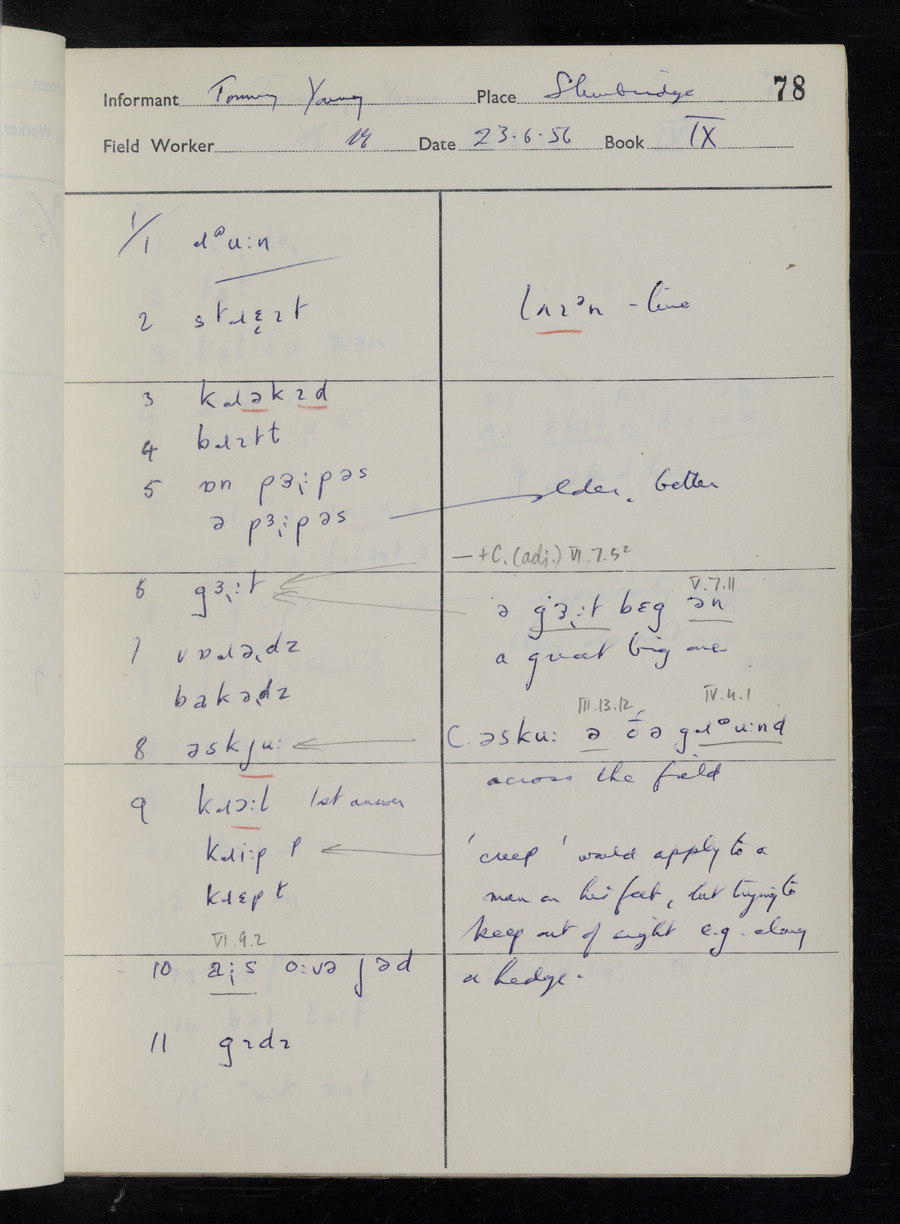 Informant Tommy Young Place Slimbridge 78
Field Worker Date 23.6.56 Book IX
1/1 dᵊu:n
2 stɹɛɪt
lʌɪᵊn - line
3 kɹəkɪd
4 bɹɪtt
5 ɒn pɜ:pəs
ə pɜ:pəs older, better
—+C. (adj.) VI.7.5²
6 gɜ:t
V.7.11
ə gɜ:t bɛg ən
7 vɒɹədz
a great big one
bakədz
III.13.12 IV.4.1
8 əskju: C. əsku: ə ðə gɹᵊu:nd
across the field
9 kɹɔ:l 1st answer
kɹi:p p 'creep' would apply to a
kɹɛpt man on his feet, but trying to
keep out of sight e.g. along
VI.9.2
10 a:s o:və jəd a hedge.
11 gɪdɪ